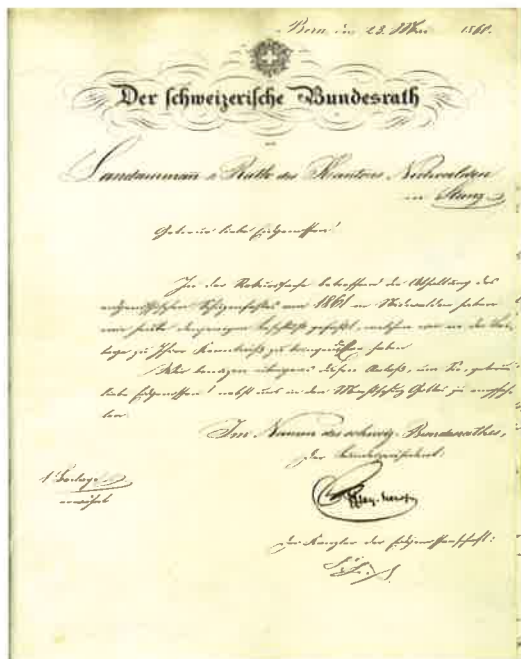 Bern, den 23. Mai 1860.
Der schweizerische Bundesrath
an
Landammann & Rath des Kantons Nidwalden
in Stanz
Getreue liebe Eidgenossen!
In der Rekurssache betreffend die Abhaltung des
eidgenössischen Schützenfestes von 1861 in Nidwalden haben
wir heute denjenigen Beschluß gefaßt, welchen wir in der Bei-
lage zu Ihrer Kenntniß zu bringen haben
Wir benützen übrigens diesen Anlaß, um Sie, getreue
liebe Eidgenossen! nebst uns in den Machtschutz Gottes zu empfeh-
len.
Im Namen des schweiz. Bundesrathes,
Der Bundespräsident:
1 Beilage
Der Kanzler der Eidgenossenschaft: